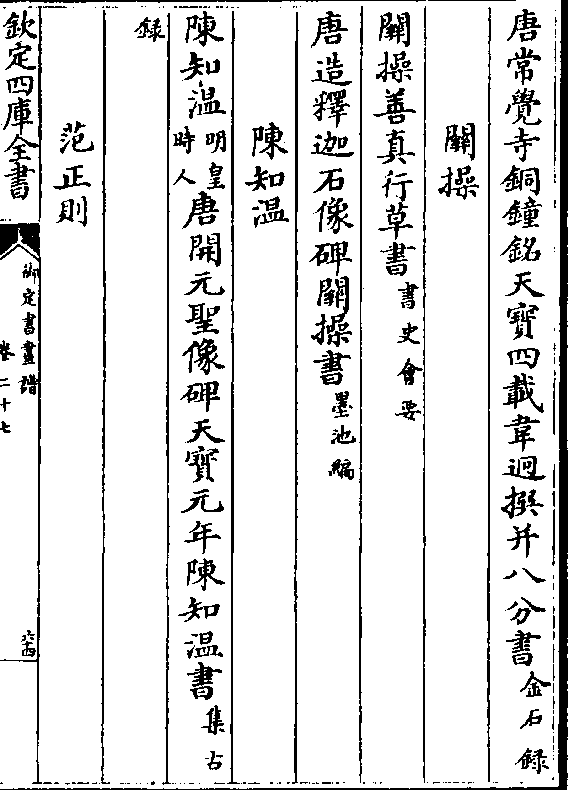 唐常覺寺銅鐘銘天寶四載韋迥撰并八分書金石錄
關操
關操善真行草書書史會要
唐造釋迦石像碑關操書墨池編
陳知溫
陳知溫明皇時人唐開元聖像碑天寶元年陳知溫書集古
錄
范正則
欽定四庫全書
御定書畫譜
卷二十七